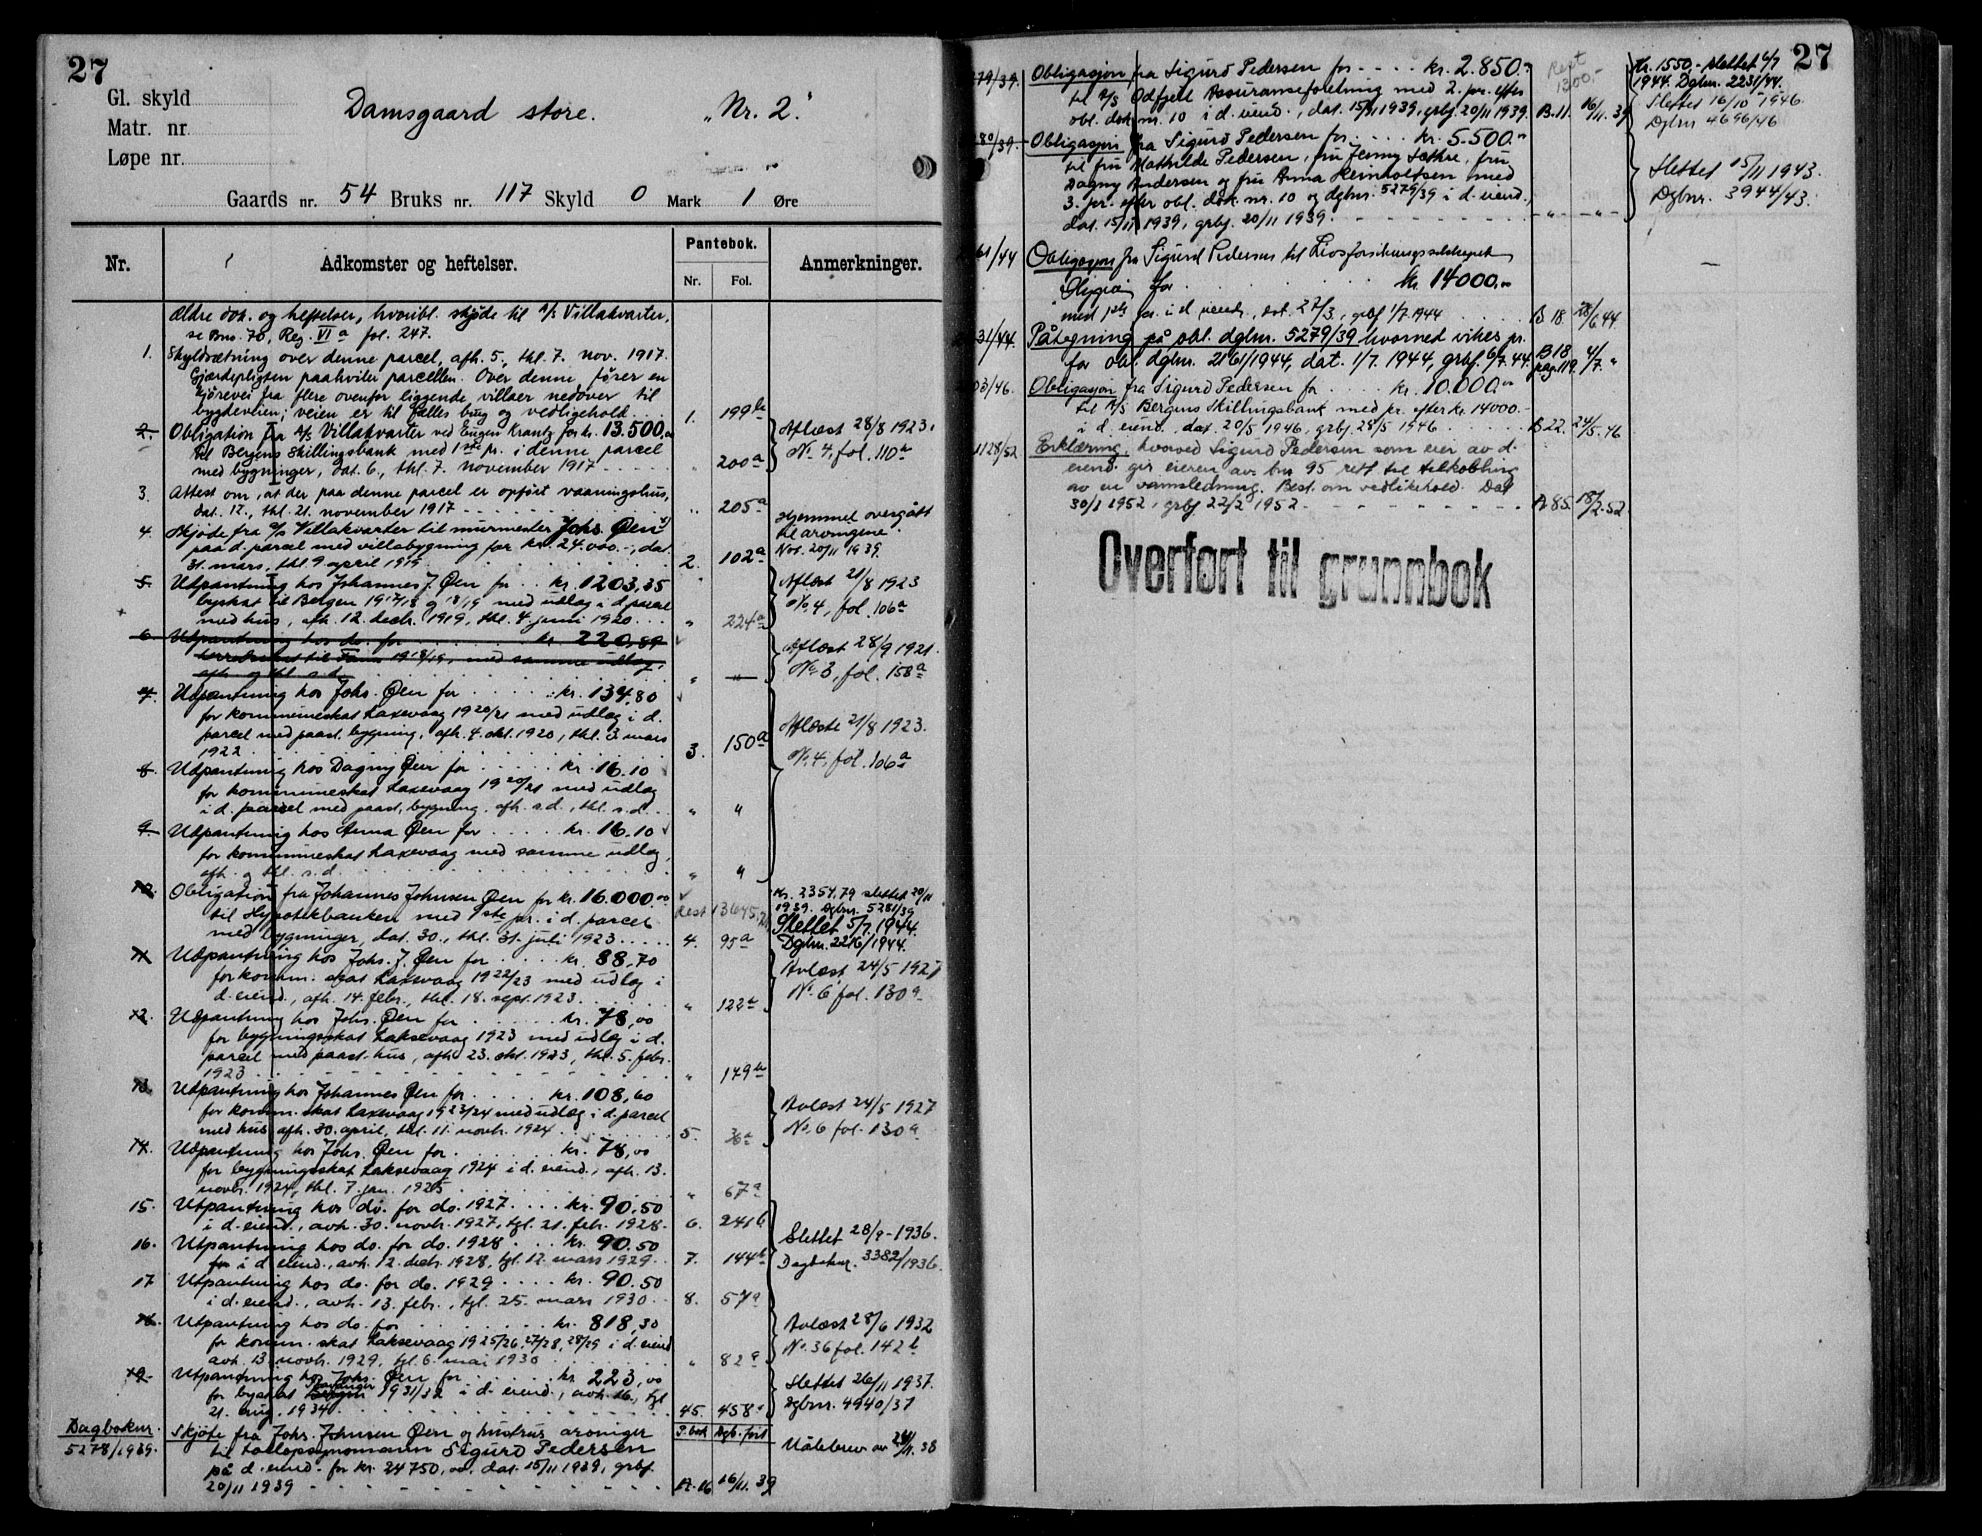 27
Gl. skyld
Matr. nr.
Løpe nr.
Damsgaard store. „Nr. 2."
Gaards nr. 54 Bruks nr. 117 Skyld 0 Mark 1 Øre
Nr. Adkomster og heftelser. Pantebok. Anmerkninger.
Nr. Fol.
Ældre dok. og heftelser, hvoribl. skjøde til A/S Villakvarter,
se Bno. 70, Reg. VI a fol. 247.
1. Skyldsætning over denne parcel, afh. 5., thl. 7. nov. 1917.
Gjærdepligten paahviler parcellen. Over denne fører en
kjørevei fra flere ovenfor liggende villaer nedover til
bygdeveien; veien er til fælles brug og vedligehold. 1. 199b
2. Obligation fra A/S Villakvarter ved Eugen Krantz for kr. 13.500,00
til Bergens Skillingsbank med 1ste pr. i denne parcel
med bygninger, dat. 6., thl. 7. november 1917 " 200a
Aflæst 28/8 1923.
No 4, fol. 110a
3. Attest om, at der paa denne parcel er opført vaaningshus,
dat. 12., thl. 21. november 1917 " 205a
4. Skjøde fra A/S Villakvarter til murmester Johs. Øen
paa d. parcel med villabygning for kr. 24.000.-, dat.
31. mars, thl. 9. april 1919 2. 102a
Hjemmel overgått
til arvingene
Not. 20/11 1939.
5. Utpantning hos Johannes J. Øen for kr. 1203,35
byskat til Bergen 1917/18 og 18/19 med udlæg i d. parcel
med hus, afh. 12. decbr. 1919, thl. 4. juni 1920 " 224a
Aflæst 21/8 1923
No. 4, fol. 106a
6. Utpantning hos do. for kr. 220,89
med samme udlæg,
afh. og thl. s.d. " "
Aflæst 28/9 1921.
No. 3, fol. 158a
7. Udpantning hos Johs. Øen for kr. 134,80
for kommuneskat Laxevaag 1920/21 med udlæg i d.
parcel med paast. bygning, afh. 4. okt. 1920, thl. 3. mars
1922 3. 150a
Aflæste 21/8 1923.
No. 4, fol. 106a
8. Udpantning hos Dagny Øen for kr. 16.10
for kommuneskat Laxevaag 1920/21 med udlæg
i d. parcel med paast. bygning, afh. s.d., thl. s.d. " "
9. Udpantning hos Anna Øen for kr. 16.10
for kommuneskat Laxevaag med samme udlæg,
afh. og thl. s.d. " "
10. Obligation fra Johannes Johnsen Øen for kr. 16.000.00
til Hypotekbanken med 1ste pr. i d. parcel Rest 13645,21
med bygninger, dat. 30., thl. 31. juli 1923 4. 95a
Kr. 2354,79 slettet 20/11
1939. Dgbnr. 5281/39
Slettet 5/7. 1944.
Dgbnr. 2216/1944.
11. Udpantning hos Johs. J. Øen for kr. 88.70
for komm. skat Laxevaag 1922/23 med udlæg i
d. eiend., afh. 14. febr., thl. 18. sept. 1923 " 122b
Avlæst 24/5 1927
No. 6 fol. 130a
12. Udpantning hos Johs. Øen for kr. 78,00
for bygningsskat Laksevaag 1923 med udlæg i d.
parcel med paast. hus, afh. 23. okt. 1923, thl. 5. febr.
1923 " 149b
13. Udpantning hos Johannes Øen for kr. 108,60
for komm. skat Laxevaag 1923/24 med udlæg i d. parcel
med hus, afh. 30. april, thl. 11. novbr. 1924 5. 36a
Avlæst 24/5 1927
No. 6 fol. 130a
14. Udpantning hos Johs. Øen for kr. 78,00
for bygningsskat Laksevaag 1924 i d. eiend., afh. 13.
novbr. 1924, thl. 7. jan. 1925 " 67a
15. Utpantning hos do. for do. 1927 kr. 90,50
i d. eiend., avh. 30. novbr. 1927, tgl. 21. febr. 1928 6. 241b
16. Utpantning hos do. for do. 1928 kr. 90.50
i d. eiend., avh. 12. decbr. 1928, tgl. 12. mars 1929 7. 144b
Slettet 28/9-1936.
Dagboknr. 3382/1936.
17 Utpantning hos do. for do. 1929 kr. 90.50
i d. eiend., avh. 13. febr., tgl. 25. mars 1930 8. 57a
18. Utpantning hos do. for kr. 818,30
for komm. skat Laksevaag 1925/26, 27/28, 28/29 i d. eiend.
avh. 13. novbr. 1929, tgl. 6. mai 1930 " 82a
Avlæst 28/6 1932
No. 36 fol. 142b
19. Utpantning hos Johs. Øen for kr. 223,00
Stavanger
for byskat Bergen 1931/32 i d. eiend., avh. 16., tgl
21. aug. 1934 45. 458a
Slettet 26/11 1937.
Dgbnr. 4940/37
Dagboknr.
5278/1939.
P. bok Dgb. ført
Skjøte fra Johs. Johnsen Øen og hustrus arvinger
til tollopsynsmann Sigurd Pedersen
på d. eiend. for kr. 24750,00, dat. 15/11 1939, grbf.
20/11 1939 A. 16 16/11. 39
Målebrev av 24/11. 38
27
79/39. Obligasjon fra Sigurd Pedersen for kr. 2.850.-
Rest
1300,-
til A/S Odfjell Assuranseforetning med 2. pr. efter
obl. dok. nr. 10 i d. eiend., dat. 15/11 1939, grbf. 20/11 1939. B. 11. 16/11. 39
Kr. 1550,- slettet 6/7
1944. Dgbnr. 2231/44.
Slettet 16/10 1946.
Dgbnr 4696/46
80/39. Obligasjon fra Sigurd Pedersen for kr. 5.500.-
til fru Mathilde Pedersen, fru Jenny Sæthre, fru
Dagny Andersen og fru Anna Heinholtsen med
3. pr. efter obl. dok. nr. 10 og dgbnr. 5279/39 i d. eiend.,
dat. 15/11 1939, grbf. 20/11 1939. " "
Slettet 15/11 1943.
Dgbnr. 3944/43.
61/44 Obligasjon fra Sigurd Pedersen til Livsforsikringsselskapet
Hygea for kr. 14000,00
med 1ste pr. i d. eiend., dat. 27/3, grbf 1/7 1944 B 18. 28/6. 44.
31/44. Påtegning på obl. dgbnr. 5279/39 hvorved vikes pr.
for obl. dgbnr. 2161/1944, dat. 1/7. 1944, grbf. 6/7. 44. B 18 pag. 119. 4/7. "
03/46. Obligasjon fra Sigurd Pedersen for kr. 10.000.00
til A/S Bergens Skillingsbank med pr. efter kr. 14000.-
i d. eiend., dat. 20/5 1946, grbf. 28/5 1946 B 22. 24/5. 46
1128/52 Erklæring, hvorved Sigurd Pedersen som eier av d.
eiend. gir eieren av bnr 95 rett til tilkobling
av en vannledning. Best. om vedlikehold. Dat
30/1 1952, grbf 22/2 1952. A 85. 18/2. 52.
Overført til grunnbok